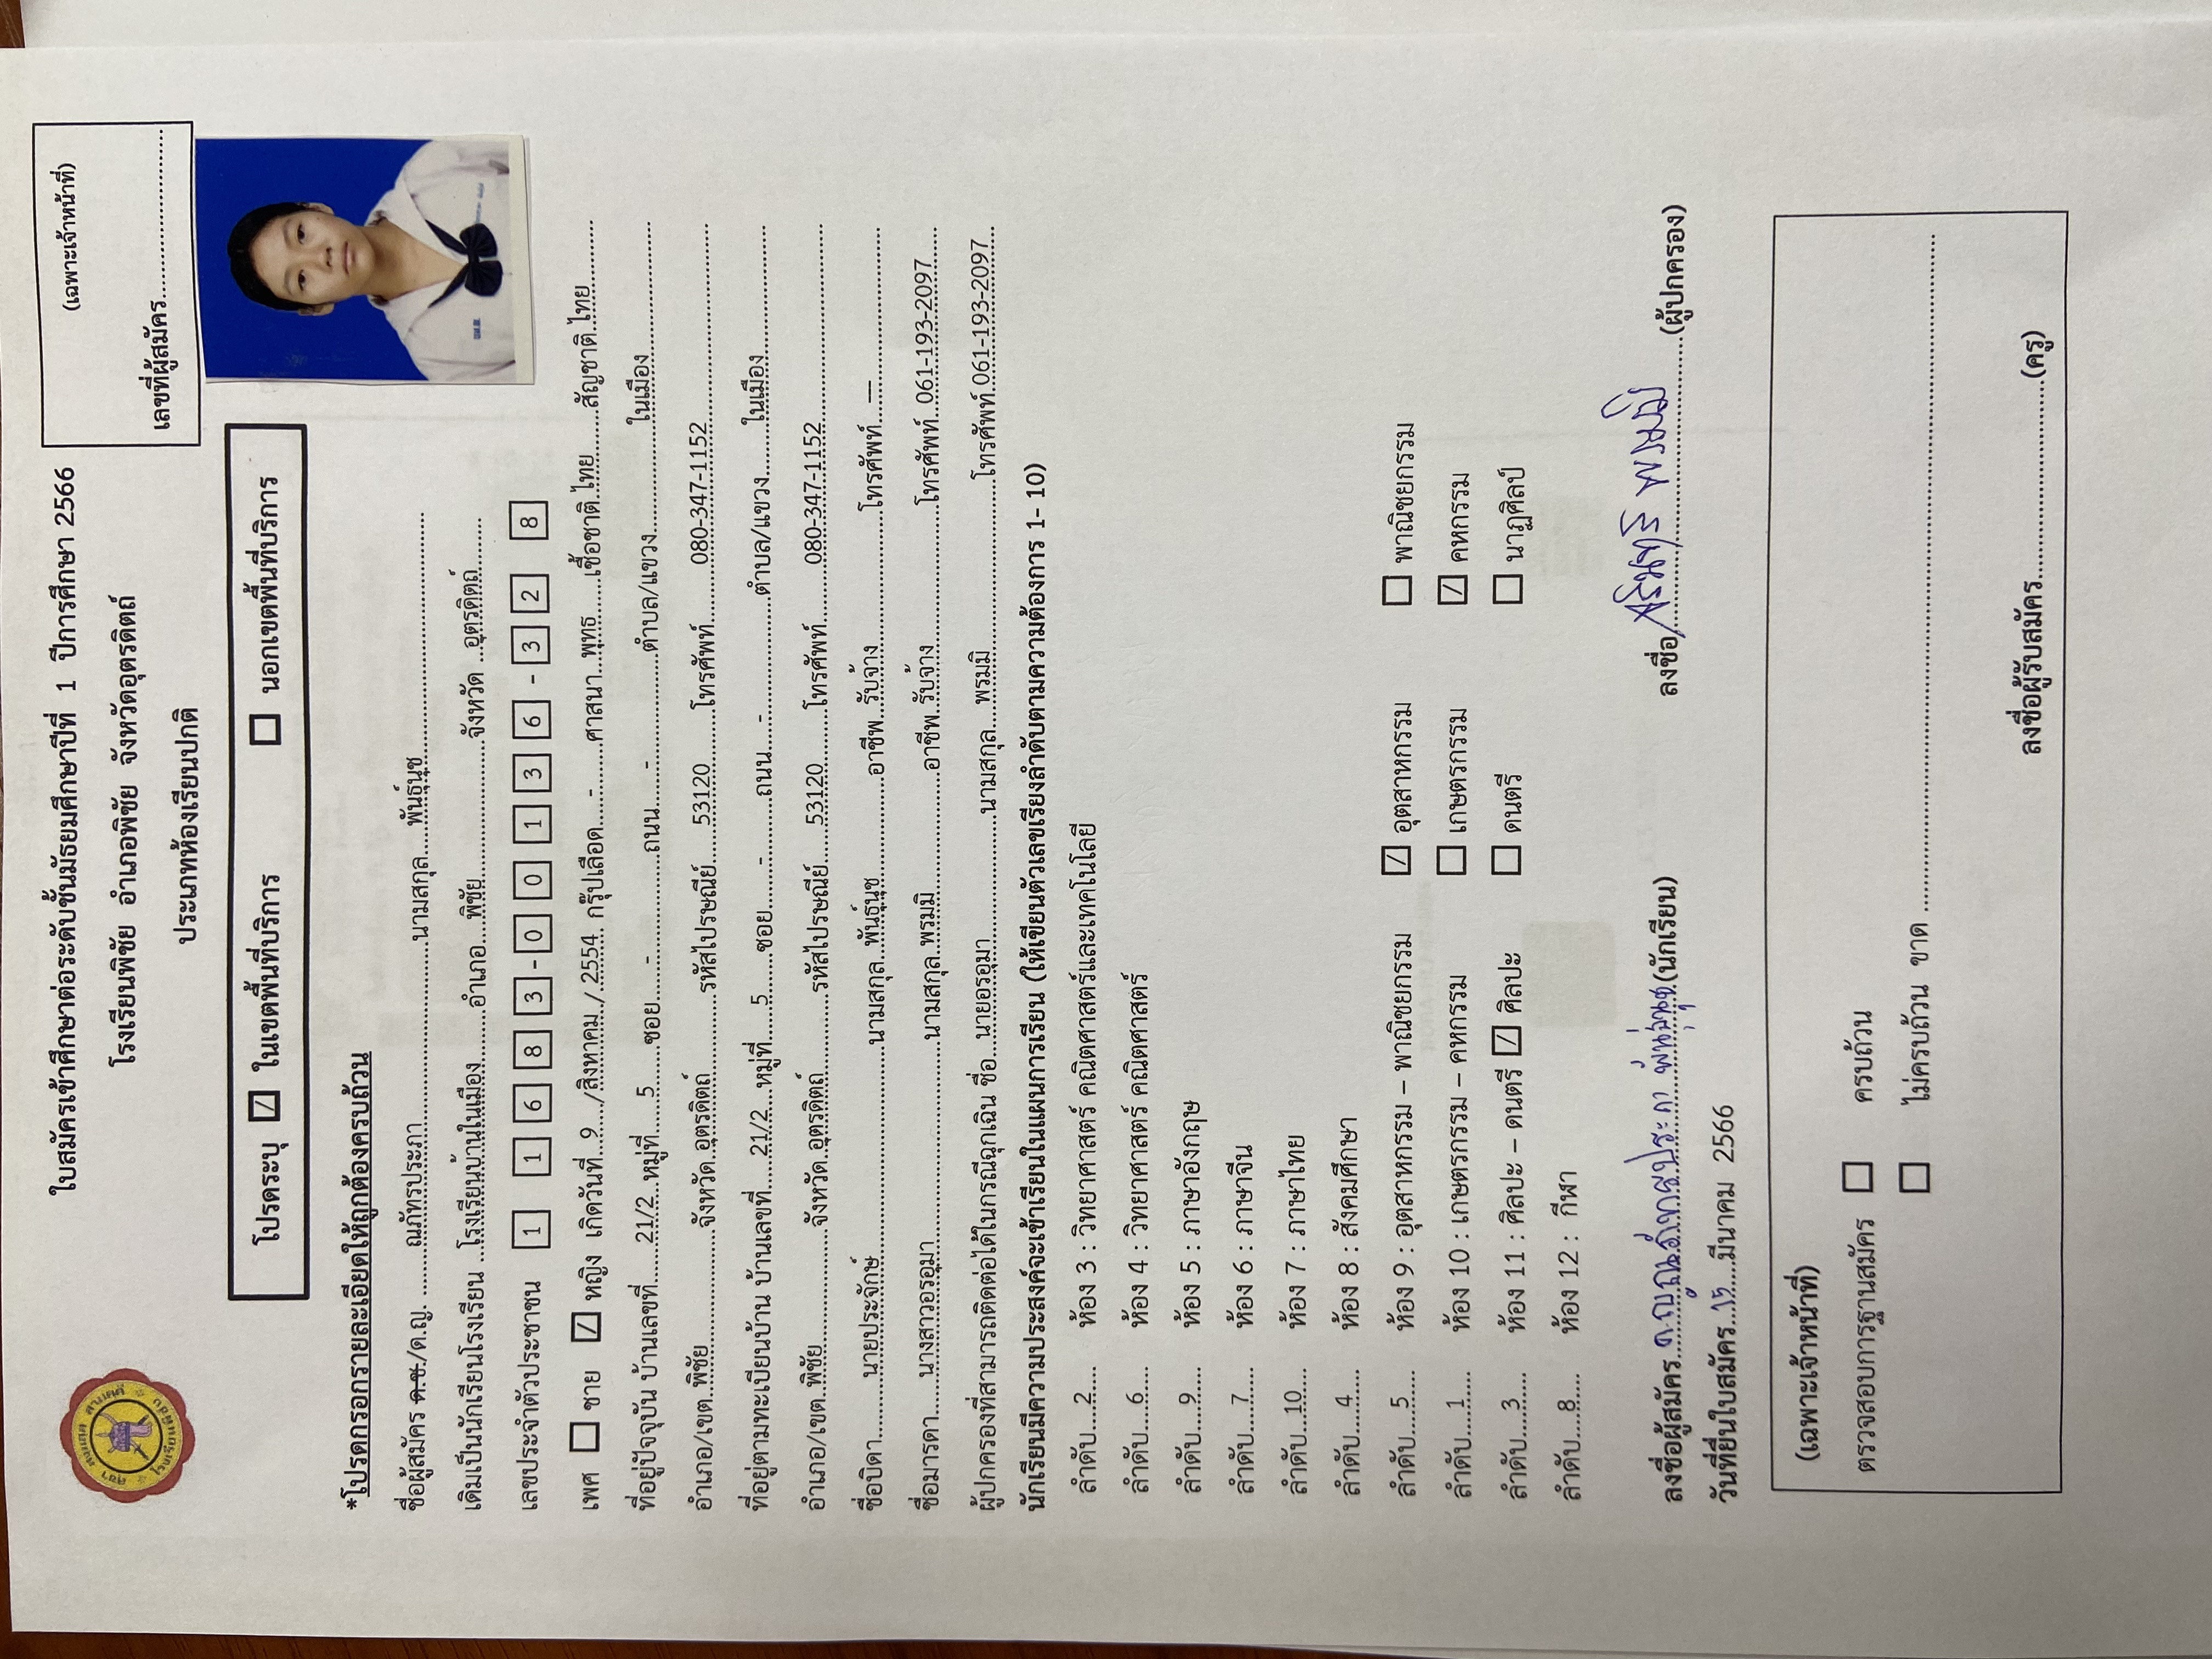 (เฉพาะเจ้าหน้าที่)
เลขที่ผู้สมัคร..............................
ใบสมัครเข้าศึกษาต่อระดับชั้นมัธยมศึกษาปีที่ 1 ปีการศึกษา 2566
โรงเรียนพิชัย อำเภอพิชัย จังหวัดอุตรดิตถ์
ประเภทห้องเรียนปกติ
โปรดระบุ ☑ ในเขตพื้นที่บริการ ☐ นอกเขตพื้นที่บริการ
*โปรดกรอกรายละเอียดให้ถูกต้องครบถ้วน
ชื่อผู้สมัคร ด.ช./ด.ญ. ........ณภัทรประภา........นามสกุล.....พันธุ์นุช........
เดิมเป็นนักเรียนโรงเรียน ...โรงเรียนบ้านในเมือง........อำเภอ....พิชัย........จังหวัด ...อุตรดิตถ์.......
เลขประจำตัวประชาชน 1 1 6 8 3 - 0 0 1 3 6 - 3 2 8
เพศ ☐ ชาย ☑ หญิง เกิดวันที่...9..../สิงหาคม./.2554 กรุ๊ปเลือด....-........ศาสนา...พุทธ......เชื้อชาติ.ไทย.......สัญชาติ.ไทย..........
ที่อยู่ปัจจุบัน บ้านเลขที่......21/2..หมู่ที่.....5......ซอย.....-........ถนน.....-........ตำบล/แขวง........ในเมือง........
อำเภอ/เขต.พิชัย........จังหวัด..อุตรดิตถ์........รหัสไปรษณีย์.....53120........โทรศัพท์........080-347-1152........
ที่อยู่ตามทะเบียนบ้าน บ้านเลขที่.....21/2...หมู่ที่.....5.......ซอย......-........ถนน....-........ตำบล/แขวง........ในเมือง........
อำเภอ/เขต.พิชัย........จังหวัด..อุตรดิตถ์........รหัสไปรษณีย์.....53120........โทรศัพท์........080-347-1152........
ชื่อบิดา........นายประจักษ์........นามสกุล..พันธุ์นุช........อาชีพ..รับจ้าง........โทรศัพท์....—........
ชื่อมารดา.......นางสาวอรอุมา........นามสกุล.พรมมิ........อาชีพ.รับจ้าง........โทรศัพท์..061-193-2097....
ผู้ปกครองที่สามารถติดต่อได้ในกรณีฉุกเฉิน ชื่อ...นายอรอุมา........นามสกุล....พรมมิ........โทรศัพท์.061-193-2097...
นักเรียนมีความประสงค์จะเข้าเรียนในแผนการเรียน (ให้เขียนตัวเลขเรียงลำดับตามความต้องการ 1- 10)
ลำดับ....2..... ห้อง 3 : วิทยาศาสตร์ คณิตศาสตร์และเทคโนโลยี
ลำดับ....6..... ห้อง 4 : วิทยาศาสตร์ คณิตศาสตร์
ลำดับ....9..... ห้อง 5 : ภาษาอังกฤษ
ลำดับ....7..... ห้อง 6 : ภาษาจีน
ลำดับ...10..... ห้อง 7 : ภาษาไทย
ลำดับ....4..... ห้อง 8 : สังคมศึกษา
ลำดับ....5..... ห้อง 9 : อุตสาหกรรม – พาณิชยกรรม ☑ อุตสาหกรรม ☐ พาณิชยกรรม
ลำดับ....1..... ห้อง 10 : เกษตรกรรม – คหกรรม ☐ เกษตรกรรม ☑ คหกรรม
ลำดับ....3..... ห้อง 11 : ศิลปะ – ดนตรี ☑ ศิลปะ ☐ ดนตรี ☐ นาฏศิลป์
ลำดับ....8..... ห้อง 12 : กีฬา
ลงชื่อผู้สมัคร...ด.ญ.ณภัทรประภา พันธุ์นุช.(นักเรียน) ลงชื่อ........(ผู้ปกครอง)
วันที่ยื่นใบสมัคร..15.....มีนาคม 2566
(เฉพาะเจ้าหน้าที่)
ตรวจสอบการฐานสมัคร ☐ ครบถ้วน
☐ ไม่ครบถ้วน ขาด ........................................
ลงชื่อผู้รับสมัคร..............................(ครู)